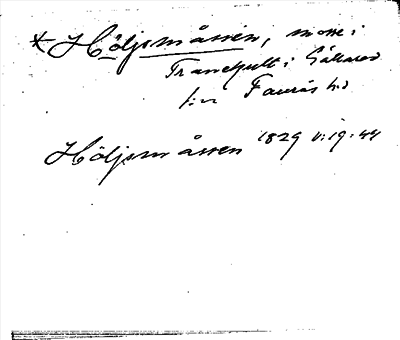 * Höljsmåssen, mosse i
Tranekult i Gällared
s:n Faurås hd
Höljsmåssen 1829 V:19:44